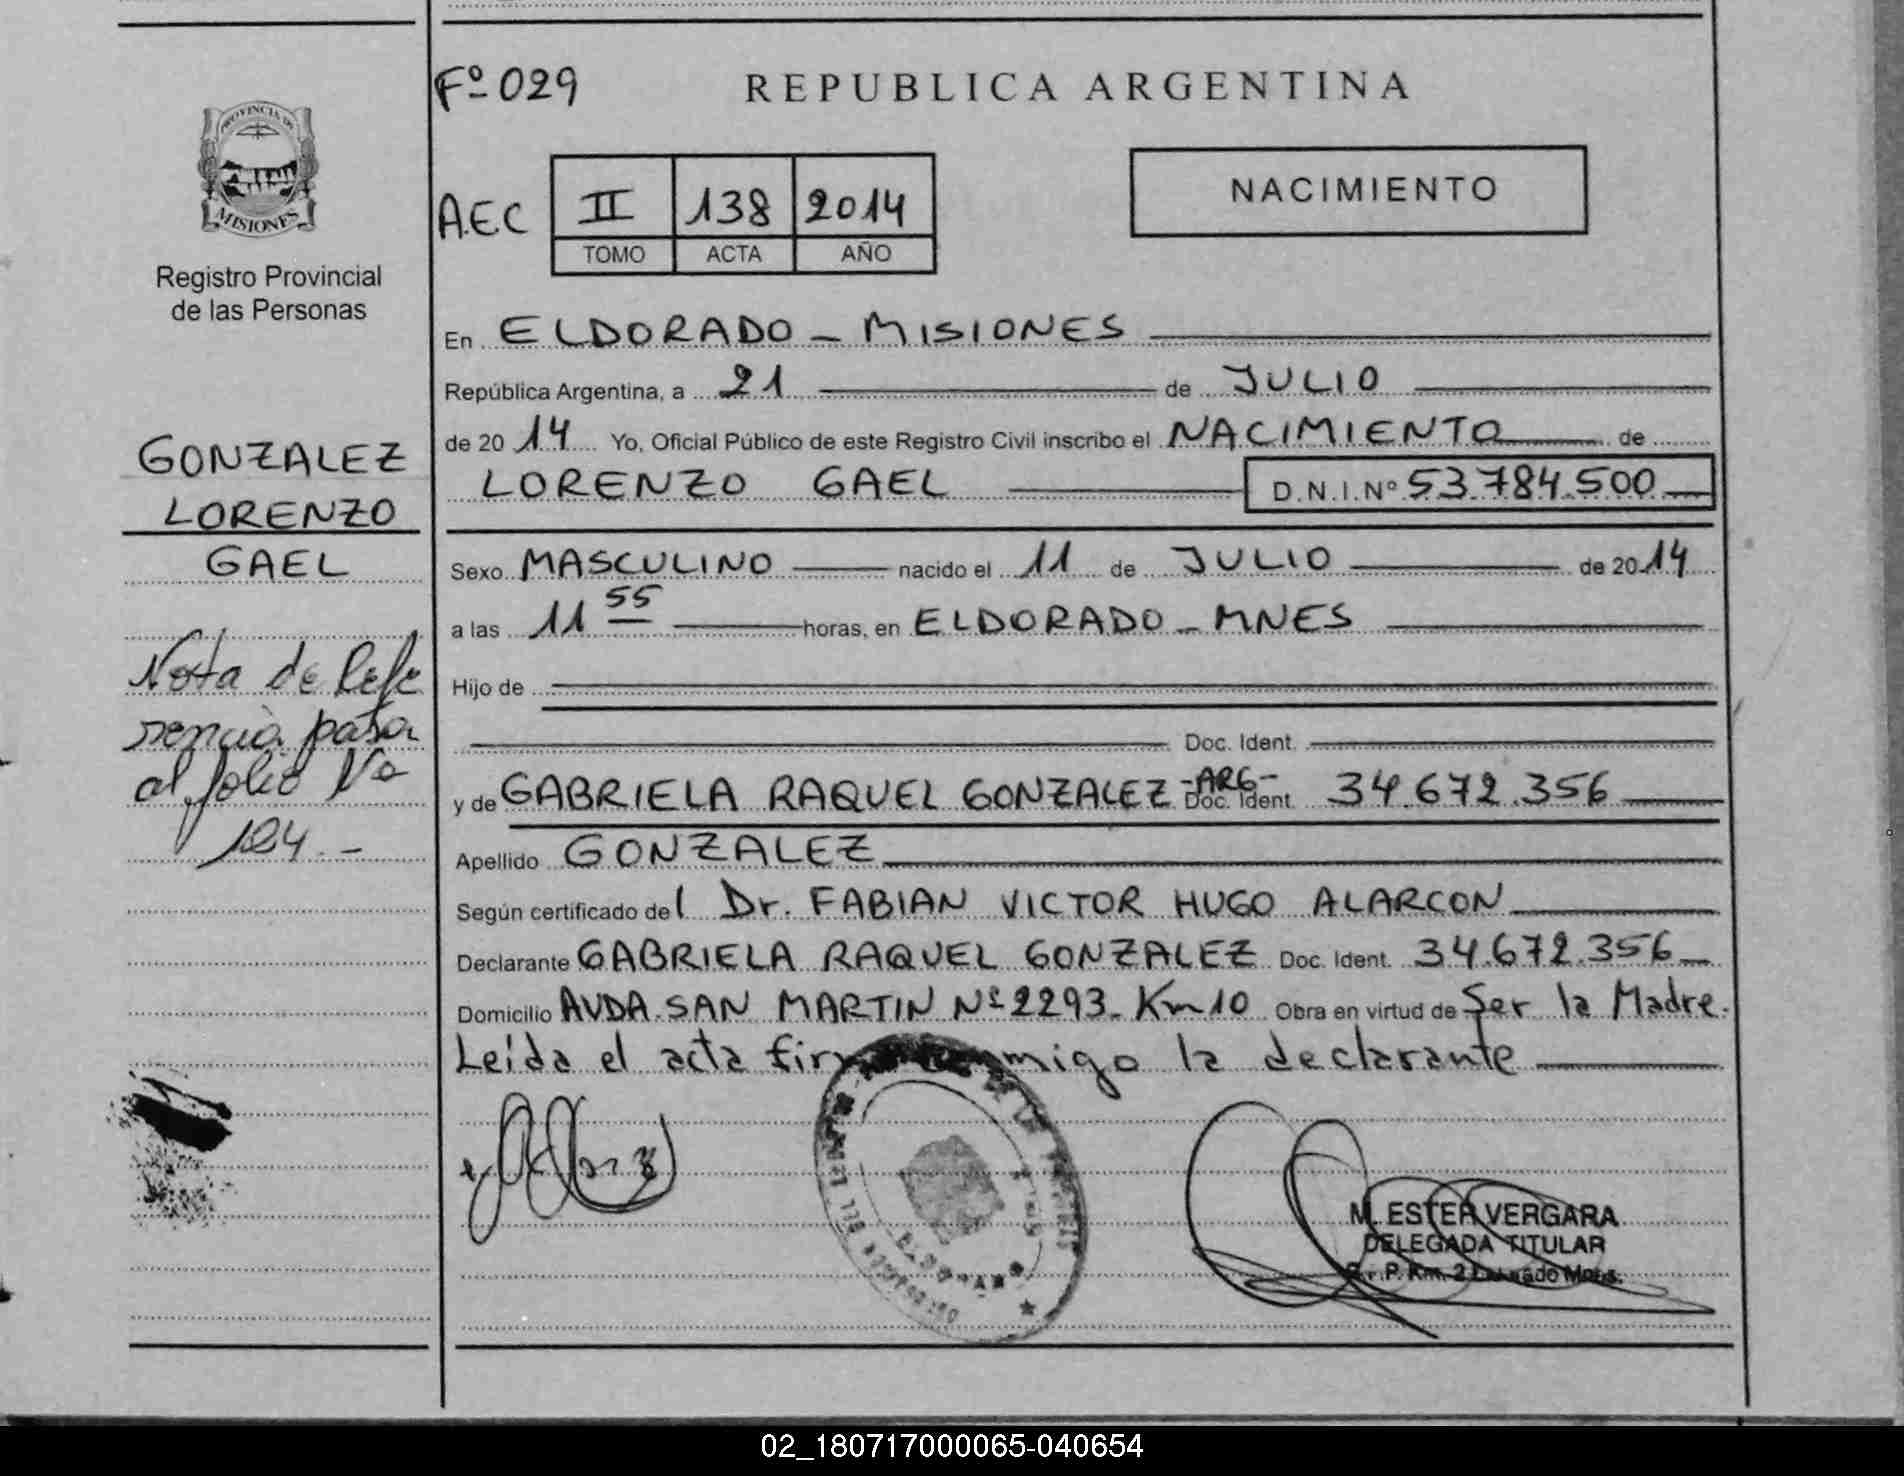 Fº 029
REPUBLICA ARGENTINA
PROVINCIA DE
MISIONES
Registro Provincial
de las Personas
A.E.C II 138 2014
TOMO ACTA AÑO
NACIMIENTO
En ELDORADO - MISIONES
República Argentina, a 21 de JULIO
de 2014 Yo, Oficial Público de este Registro Civil inscribo el NACIMIENTO de
LORENZO GAEL D.N.I.Nº 53.784.500
GONZALEZ
LORENZO
GAEL
Nota de Refe
rencia pasa
al folio Nº
124.-
Sexo MASCULINO nacido el 11 de JULIO de 2014
a las 11 55 horas, en ELDORADO - MNES
Hijo de
Doc. Ident.
y de GABRIELA RAQUEL GONZALEZ -ARG- Doc. Ident. 34.672.356
Apellido GONZALEZ
Según certificado del Dr. FABIAN VICTOR HUGO ALARCON
Declarante GABRIELA RAQUEL GONZALEZ Doc. Ident. 34.672.356
Domicilio AVDA. SAN MARTIN Nº 2293. Km 10 Obra en virtud de Ser la Madre.
Leída el acta la declarante
M. ESTER VERGARA
DELEGADA TITULAR
02_180717000065-040654